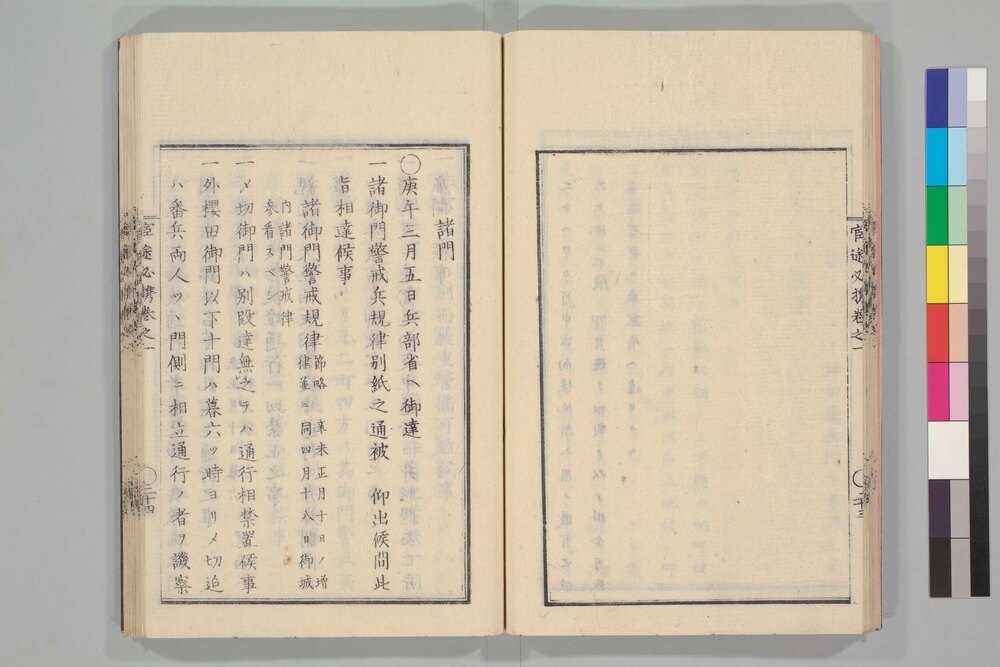 官途必携巻之一
二十三
諸門
〇庚午三月五日兵部省ヘ御達
一諸御門警戒兵規律別紙之通被 仰出候間此
旨相達候事
諸御門警戒規律節略 辛未正月十日ノ増
律並ニ同四月十八日御城
内諸門警戒律
参看スベシ
一〆切御門ハ別段達無之テハ通行相禁置候事
一外櫻田御門以下十門ハ暮六ツ時ヨリ〆切追
ハ番兵両人ツヽ門側ニ相立通行ノ者ヲ譏察
官途必携巻之一
二十四